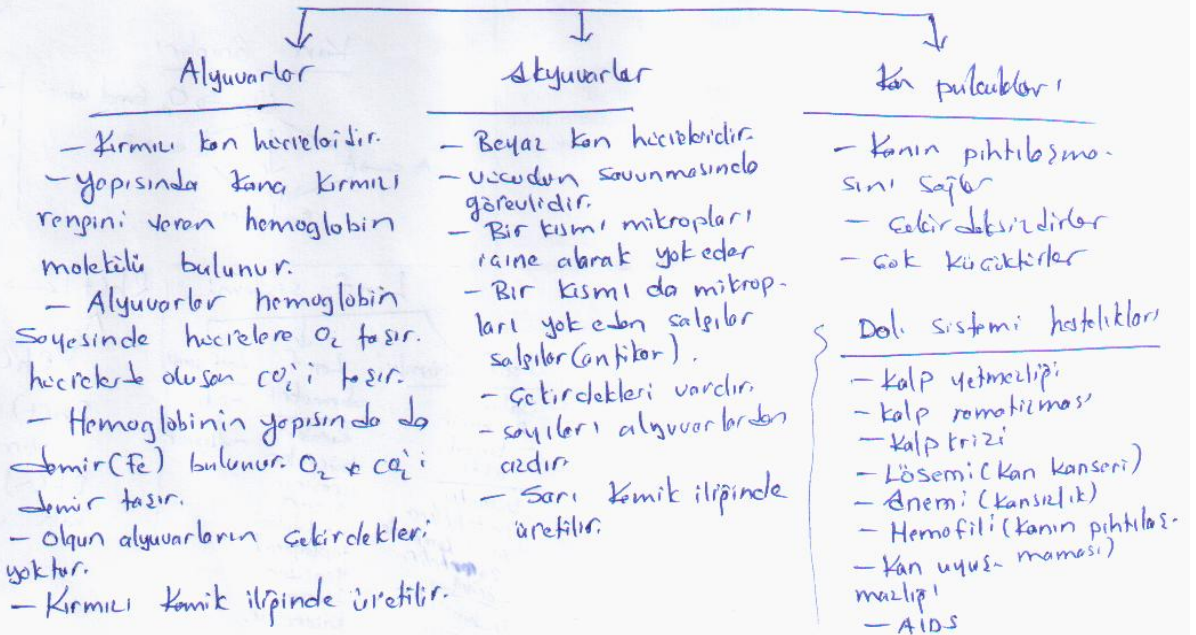 Alyuvarlar
- Kırmızı kan hücreleridir.
- Yapısında kana kırmızı
rengini veren hemoglobin
molekülü bulunur.
- Alyuvarlar hemoglobin
sayesinde hücrelere O₂ taşır.
hücrelerde oluşan CO₂'i taşır.
- Hemoglobinin yapısında da
demir (Fe) bulunur. O₂ ve CO₂'i
demir taşır.
- Olgun alyuvarların çekirdekleri
yoktur.
- Kırmızı kemik iliğinde üretilir.
Akyuvarlar
- Beyaz kan hücreleridir.
- Vücudun savunmasında
görevlidir.
- Bir kısmı mikropları
içine alarak yok eder
- Bir kısmı da mikrop-
ları yok eden salgılar
salgılar (antikor).
- Çekirdekleri vardır.
- sayıları alyuvarlardan
azdır.
- Sarı kemik iliğinde
üretilir.
Kan pulcukları
- Kanın pıhtılaşma-
sını sağlar
- Çekirdeksizdirler
- Çok küçüktürler
Dol. sistemi hastalıkları
- Kalp yetmezliği
- Kalp romatizması
- Kalp krizi
- Lösemi (Kan kanseri)
- Anemi (kansızlık)
- Hemofili (kanın pıhtılaş-
maması)
- Kan uyuş-
mazlığı
- AIDS